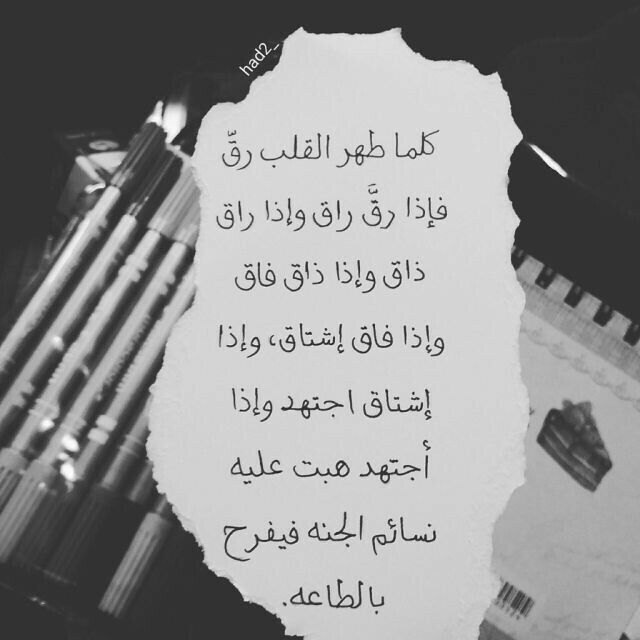 had2_
كلما طهر القلب رقّ
فإذا رقَّ راق وإذا راق
ذاق وإذا ذاق فاق
وإذا فاق إشتاق، وإذا
إشتاق اجتهد وإذا
أجتهد هبت عليه
نسائم الجنه فيفرح
بالطاعه.